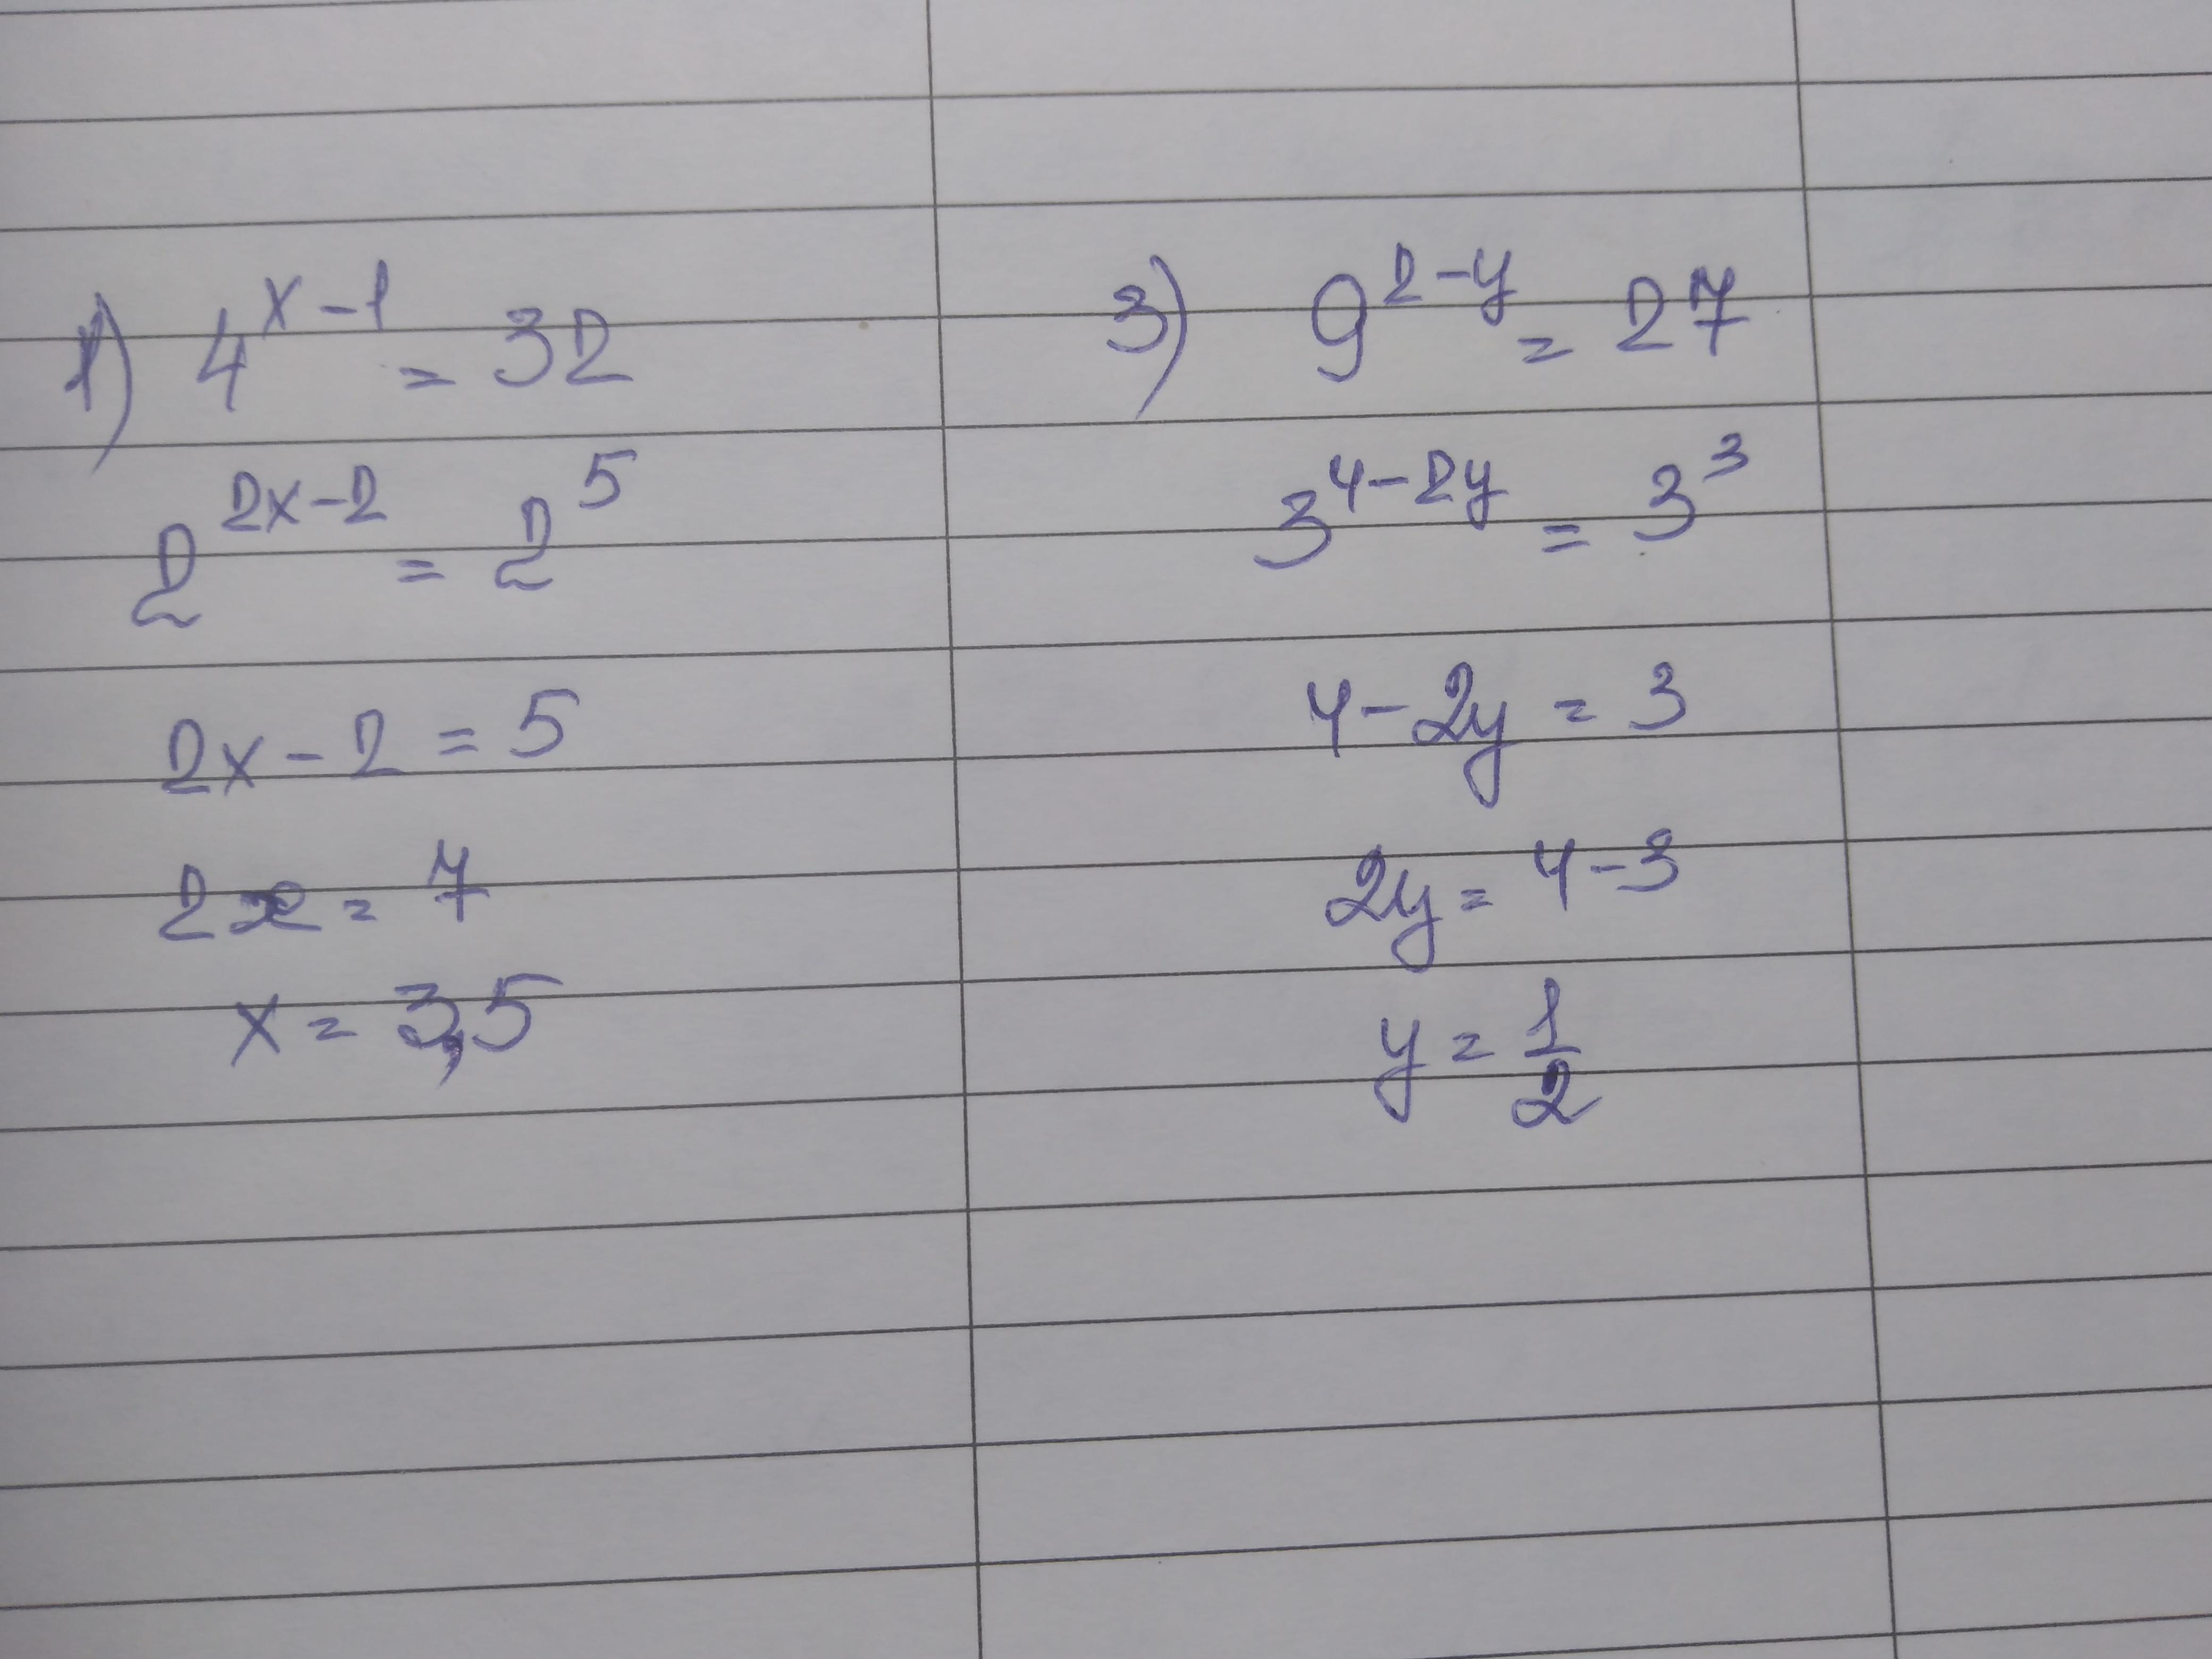 1) 4^{x-1} = 32
2^{2x-2} = 2^5
2x - 2 = 5
2x = 7
x = 3,5
3) 9^{2-y} = 27
3^{4-2y} = 3^3
4 - 2y = 3
2y = 4 - 3
y = \frac{1}{2}